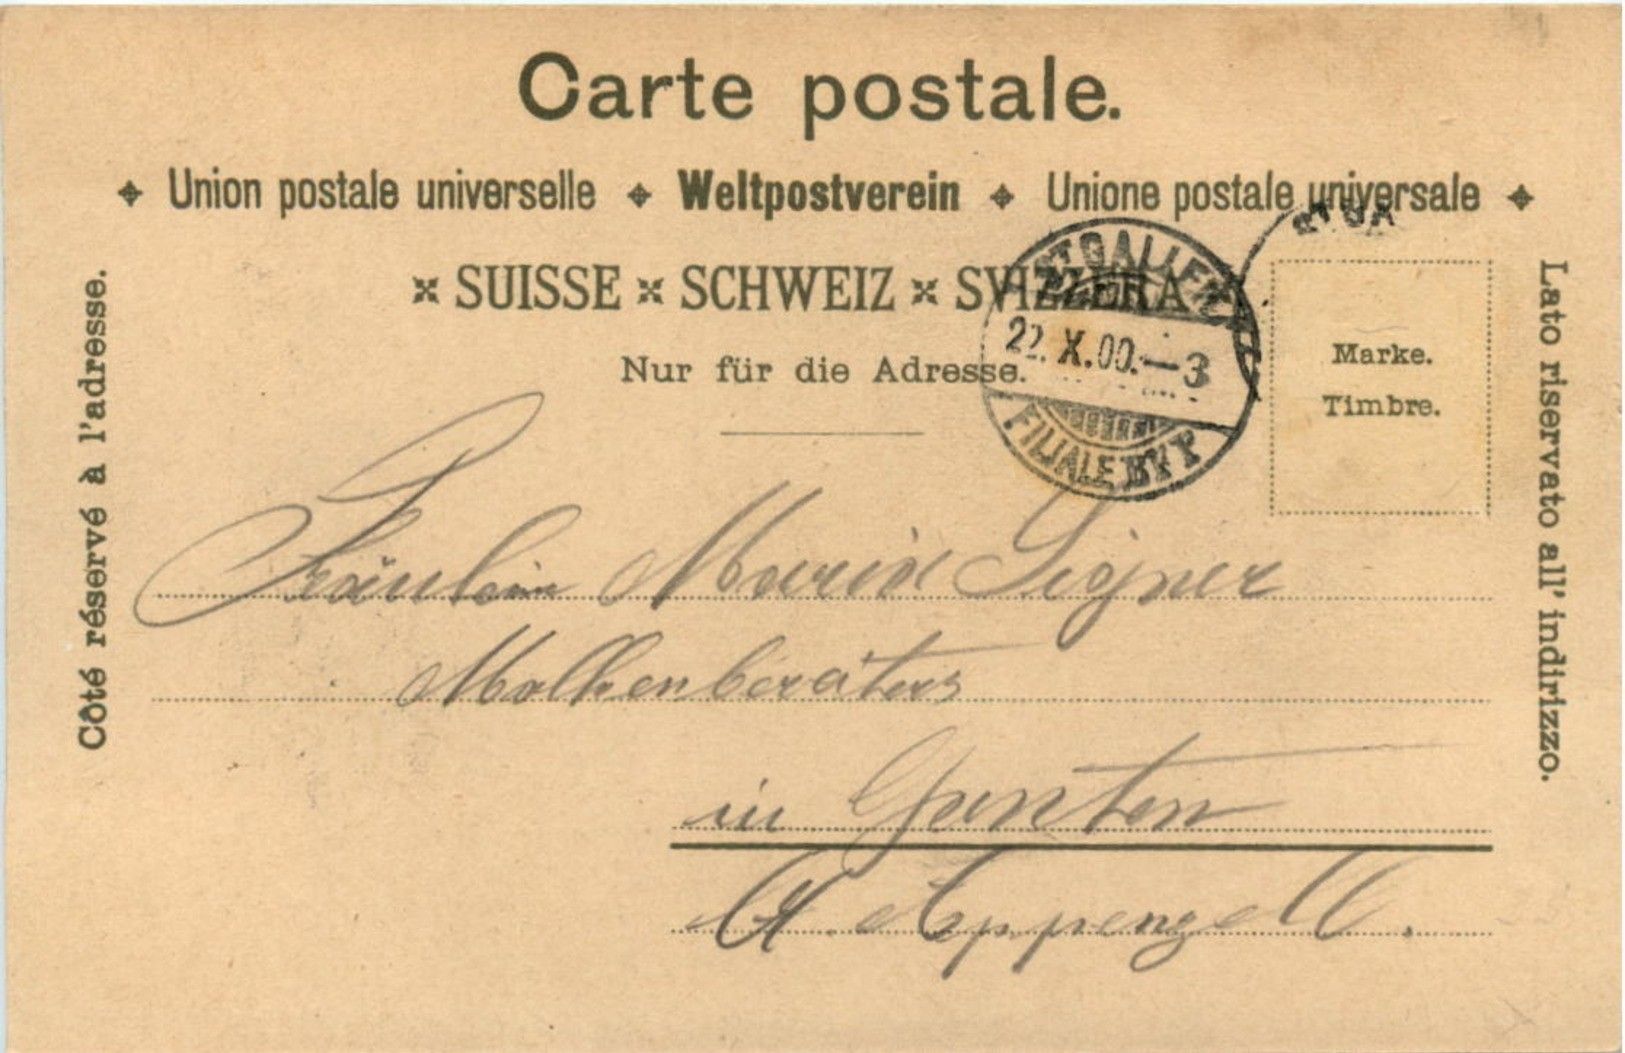 Carte postale.
Union postale universelle Weltpostverein Unione postale universale
SUISSE SCHWEIZ SVIZZERA
Nur für die Adresse.
Côté réservé à l'adresse.
Lato riservato all' indirizzo.
Marke.
Timbre.
ST GALLEN
22. X. 00. — 3
FILIALE
Fräulein Maria Signer
in Gonten
Appenzell.